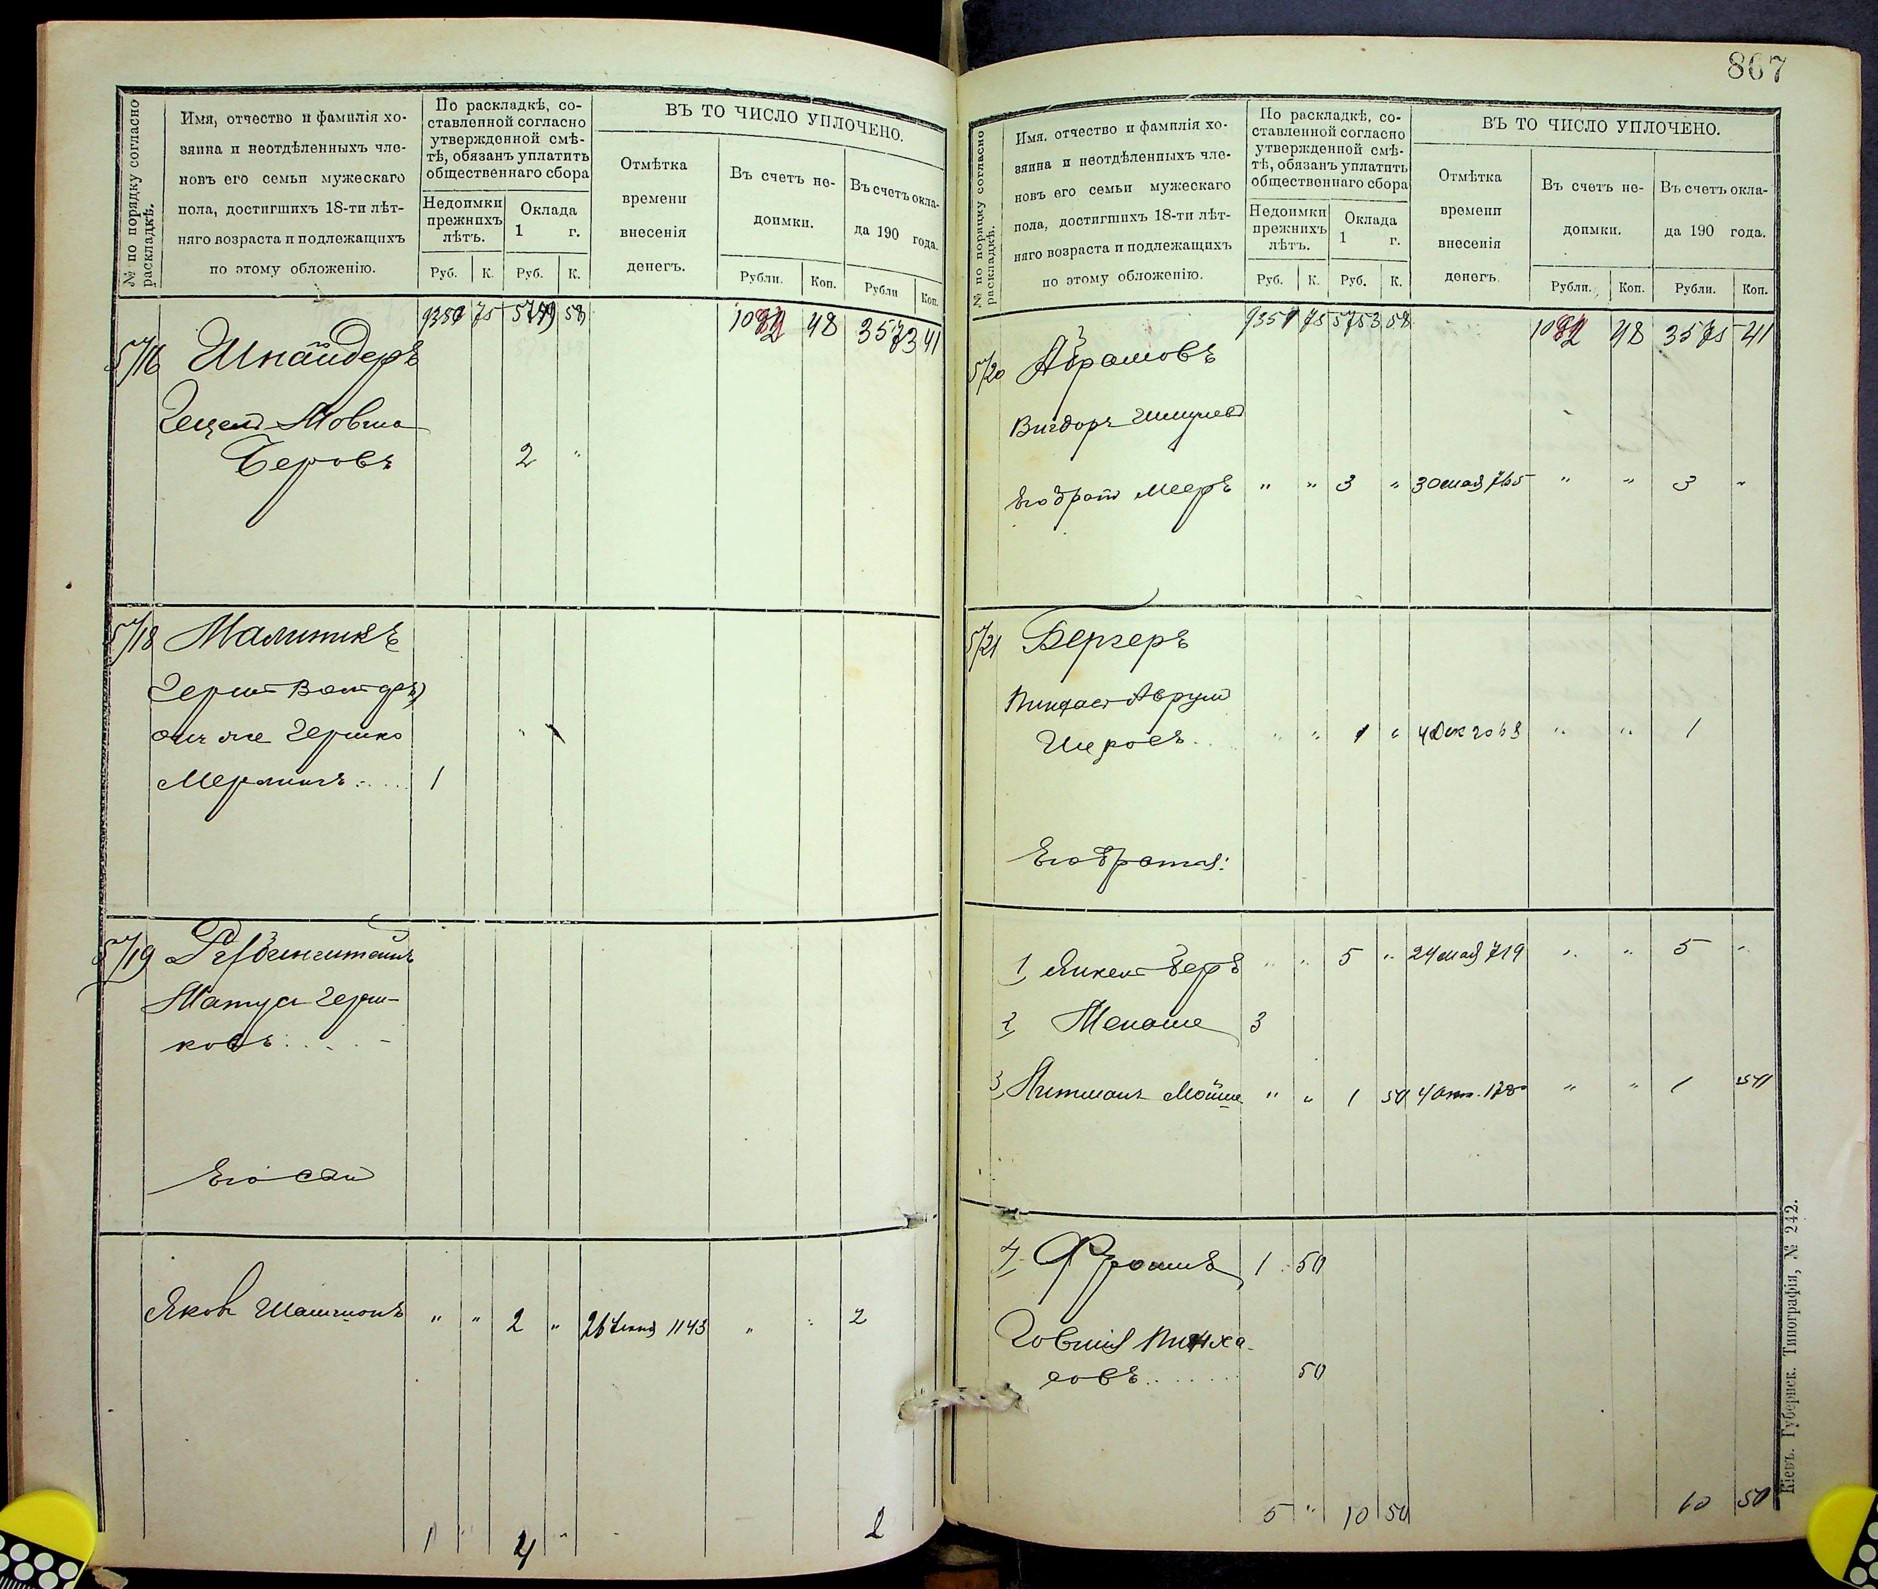 867
№ по порядку согласно раскладкѣ.
Имя, отчество и фамилія хо-
зяина и неотдѣленныхъ чле-
новъ его семьи мужескаго
пола, достигшихъ 18-ти лѣт-
няго возраста и подлежащихъ
по этому обложенію.
По раскладкѣ, со-
ставленной согласно
утвержденной смѣ-
тѣ, обязанъ уплатить
общественнаго сбора
Недоимки
прежнихъ
лѣтъ.
Оклада
1 г.
Руб. К. Руб. К.
ВЪ ТО ЧИСЛО УПЛОЧЕНО.
Отмѣтка
времени
внесенія
денегъ.
Въ счетъ не-
доимки.
Въ счетъ окла-
да 190 года.
Рубли. Коп. Рубли Коп.
75 58 48 41
5716 Шнайдеръ
Гецель-Мовша
Беровъ 2 "
5718 Малитикъ
онъ же Гершко
Мерлинъ 1
5719
Матус Герш-
ковъ
Его сын
Яковъ " " 2 " 1143 " " 2
1 " 4 " 2
№ по порядку согласно раскладкѣ.
Имя, отчество и фамилія хо-
зяина и неотдѣленныхъ чле-
новъ его семьи мужескаго
пола, достигшихъ 18-ти лѣт-
няго возраста и подлежащихъ
по этому обложенію.
По раскладкѣ, со-
ставленной согласно
утвержденной смѣ-
тѣ, обязанъ уплатить
общественнаго сбора
Недоимки
прежнихъ
лѣтъ.
Оклада
1 г.
Руб. К. Руб. К.
ВЪ ТО ЧИСЛО УПЛОЧЕНО.
Отмѣтка
времени
внесенія
денегъ.
Въ счетъ не-
доимки.
Въ счетъ окла-
да 190 года.
Рубли. Коп. Рубли. Коп.
9351 75 5753 58 48 3575 41
5720 Абрамовъ
Вигдоръ Шмулев
Его брат Мееръ " " 3 " 30 мая 765 " " 3 "
5721 Бергеръ
Пинхас Аврум
" " 1 " 4 Дек 2063 " " 1
Его братья:
1 Янкель Беръ " " 5 " 24 мая 719 " " 5 "
2 Менаше 3
3 Мойше " " 1 50 4 Окт. " " 1 50
4 Фроимъ 1 50
Говшия Пинха-
совъ 50
5 " 10 50 10 50
Кіевъ. Губернск. Типографія, № 242.